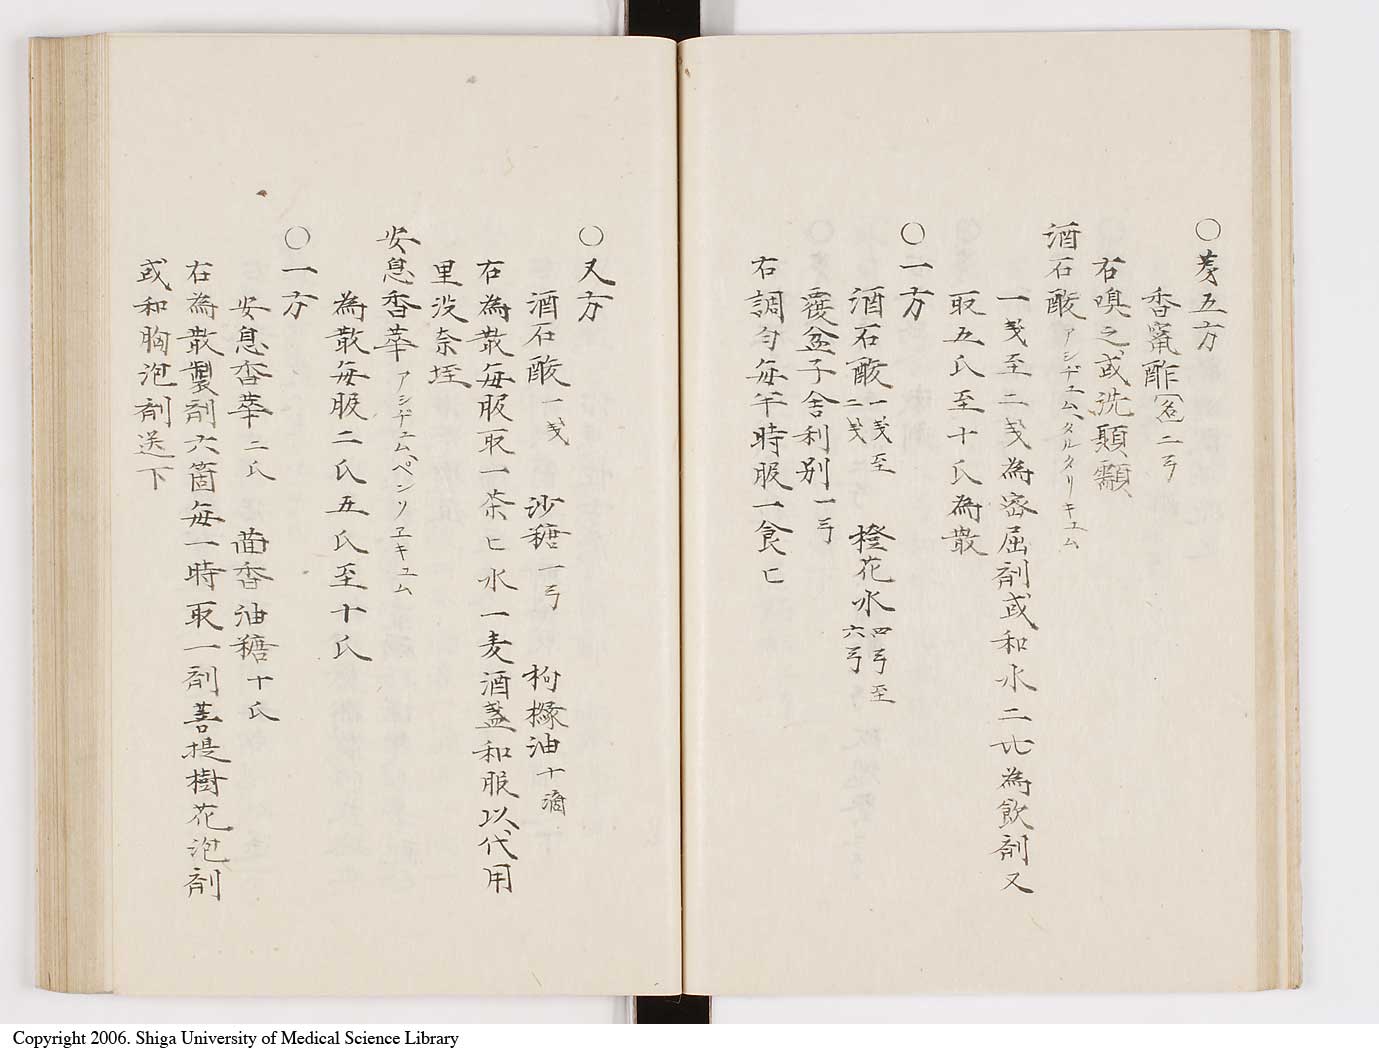 ○第五方
香竄酢 二弓
右嗅之或洗顳顬
酒石酸 アシヂュム、タルタリキュム
一戔至二戔為舐剤或和水二比為飲剤又
取五氏至十氏為散
○一方
酒石酸 一戔至二戔 橙花水 四弓至六弓
覆盆子舎利別 一弓
右調匀毎半時服一食匕
○又方
酒石酸 一戔 沙糖 一弓 枸櫞油 十滴
右為散毎服取一茶匕水一麦酒盞和服以代用
里没奈垤
安息香華 アシヂュム、ペンソヱキュム
為散毎服二氏五氏至十氏
○一方
安息香華 二氏 茴香油糖 十氏
右為散製剤六箇毎一時取一剤菩提樹花泡剤
或和胸泡剤送下
Copyright 2006. Shiga University of Medical Science Library